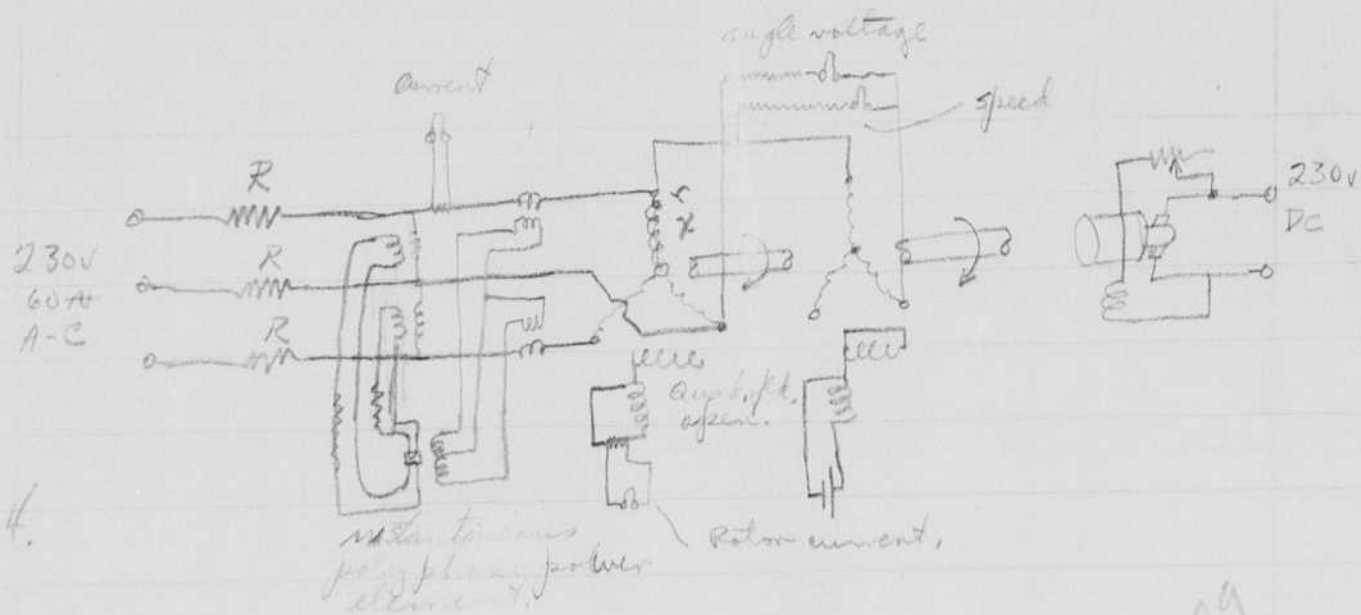 angle voltage
current
speed
R
230v
DC
r
x
R
230v
60~
A-C
R
Quad. fld.
open.
Rotor current.
instantaneous
polyphase power
element.